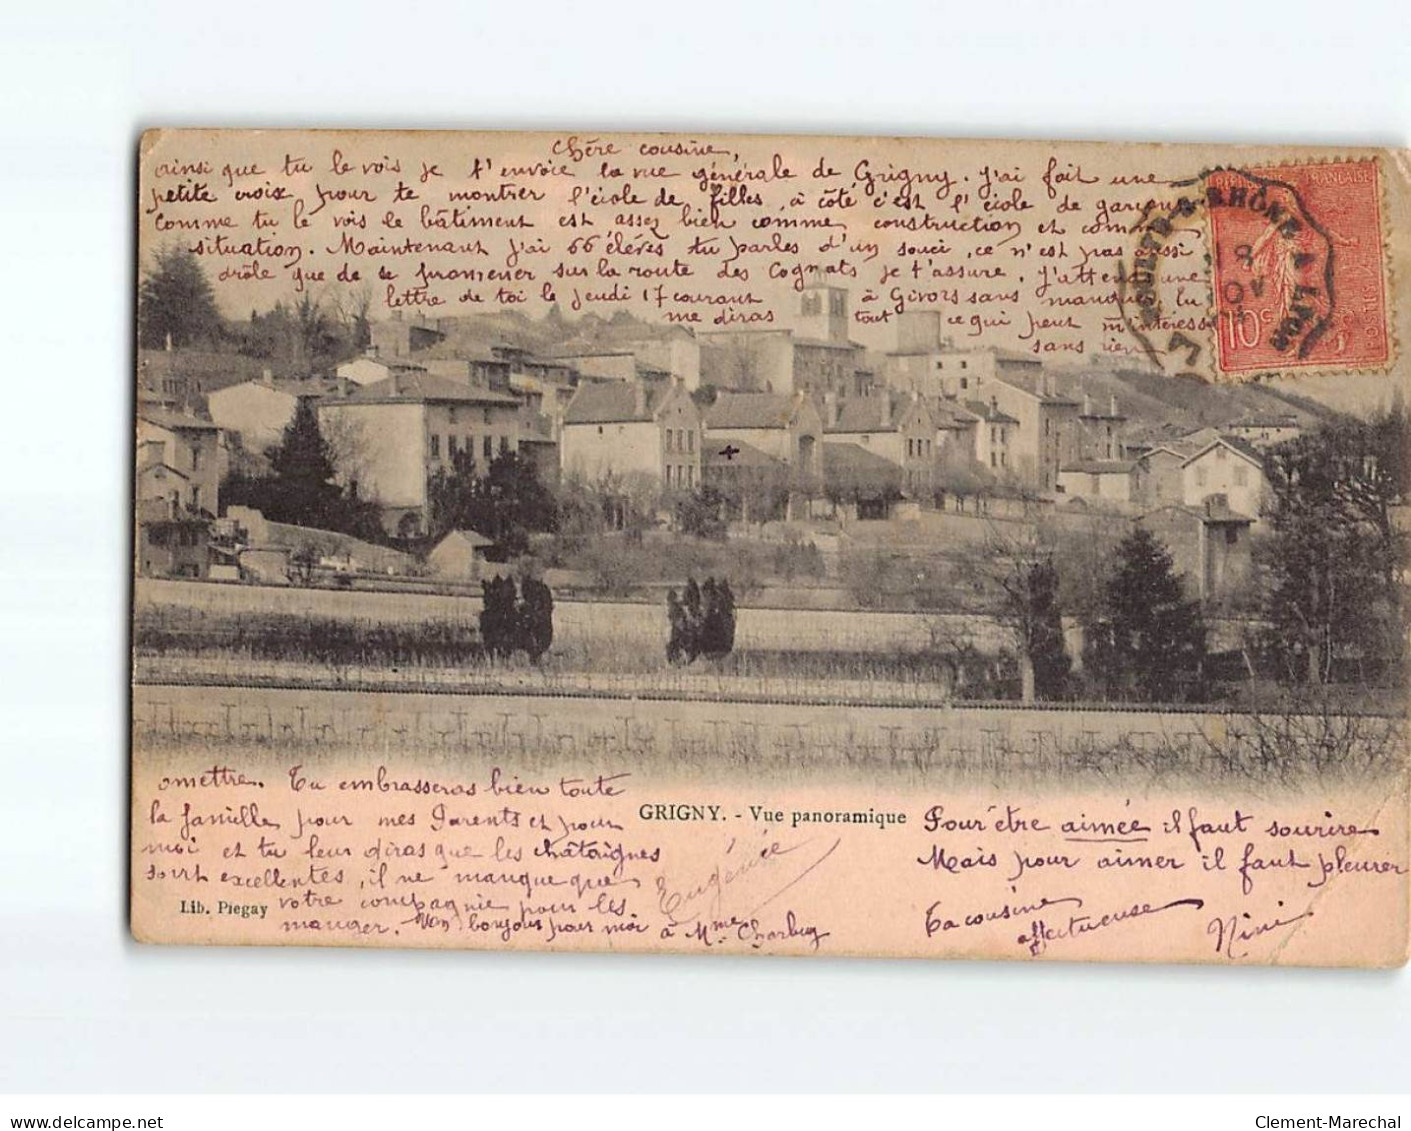 chère cousine,
ainsi que tu le vois je t'envoie la vue générale de Grigny. J'ai fait une
petite croix pour te montrer l'école de filles, à côté c'est l'école de garçons
Comme tu le vois le bâtiment est assez bien comme construction et comme
situation. Maintenant j'ai 66 élèves tu parles d'un souci, ce n'est pas aussi
drôle que de se promener sur la route des Cognats je t'assure. J'attends une
lettre de toi le Jeudi 17 courant à Givors sans manque, tu
me diras tout ce qui peut m'intéresser
sans rien
RÉPUBLIQUE FRANÇAISE
RHÔNE A LYON
8
10c
omettre. Tu embrasseras bien toute
la famille pour mes Parents et pour
moi et tu leur diras que les châtaignes
sont excellentes, il ne manque que
votre compagnie pour les
manger. Mon bonjour pour moi à Mme
Eugénie
GRIGNY. - Vue panoramique
Lib. Piegay
Pour être aimée il faut sourire
Mais pour aimer il faut pleurer
Ta cousine
affectueuse
Nini
delcampe.net
Clement-Marechal